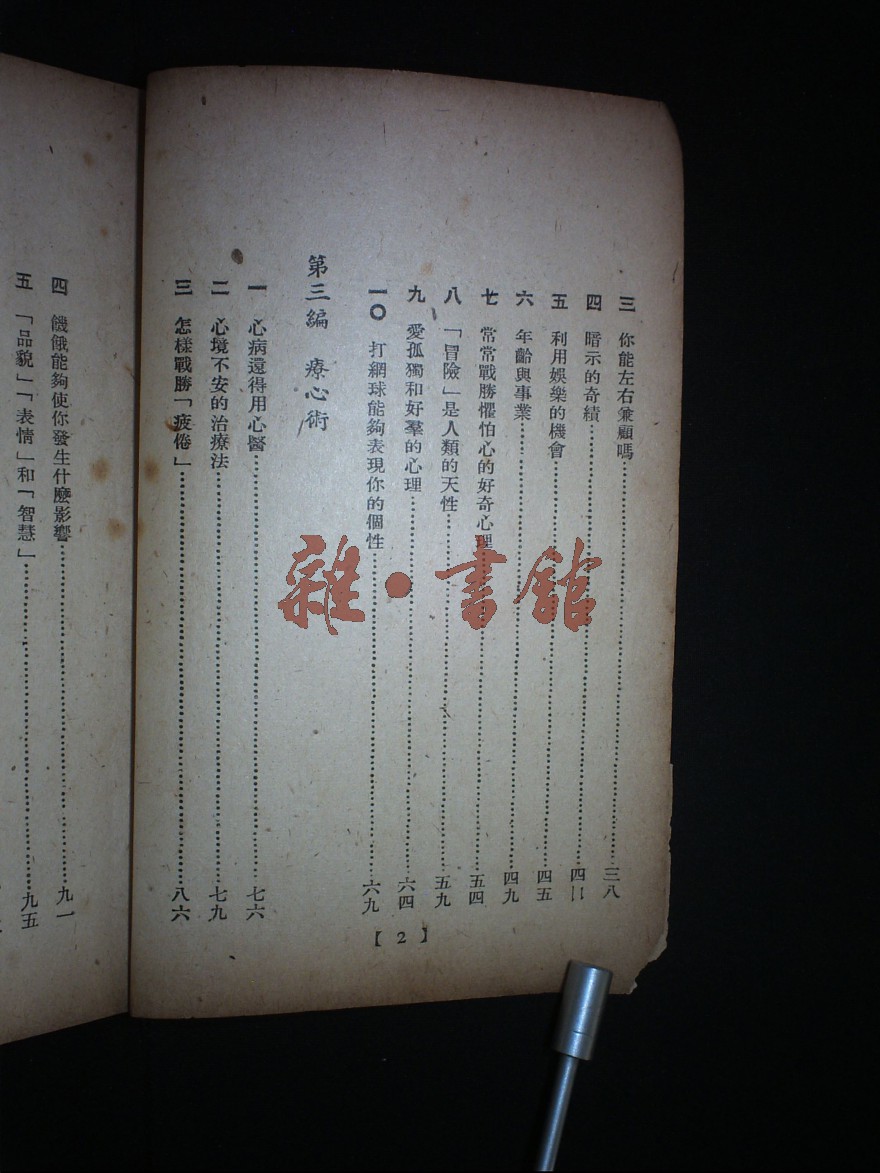 三　你能左右兼顧嗎……三八
四　暗示的奇績……四二
五　利用娛樂的機會……四五
六　年齡與事業……四九
七　常常戰勝懼怕心的好奇心理……五四
八　「冒險」是人類的天性……五九
九　愛孤獨和好羣的心理……六四
一〇　打網球能夠表現你的個性……六九
第三編　療心術
一　心病還得用心醫……七六
二　心境不安的治療法……七九
三　怎樣戰勝「疲倦」……八六
【2】
四　饑餓能夠使你發生什麼影響……九一
五　「品貌」「表情」和「智慧」……九五
雜·書館